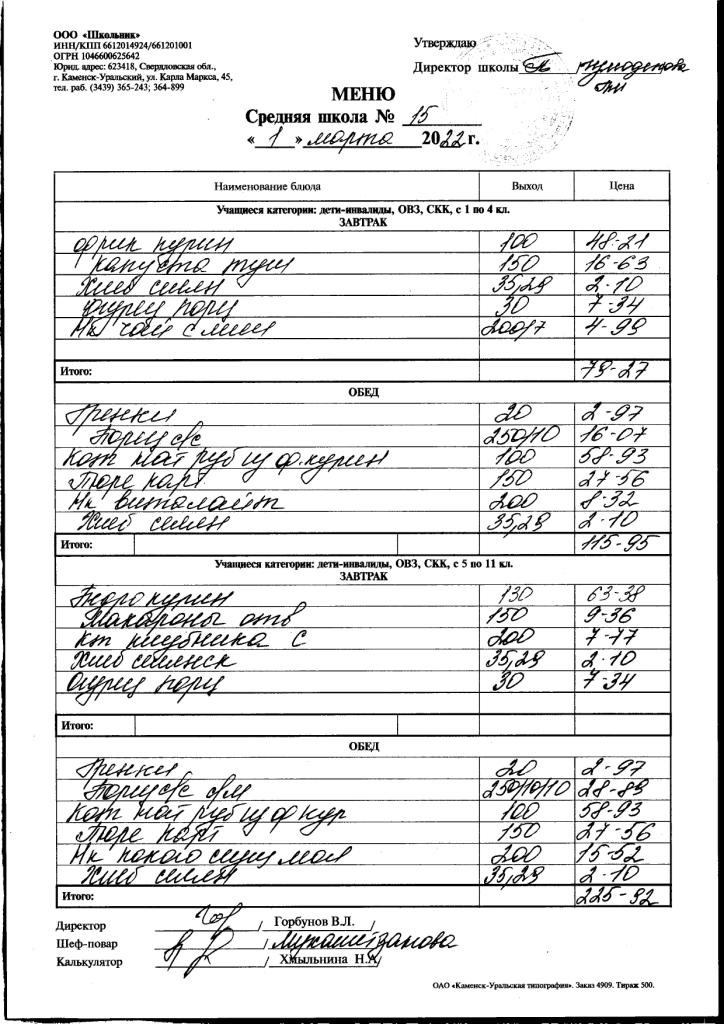 ООО «Школьник»
ИНН/КПП 6612014924/661201001
ОГРН 1046600625642
Юрид. адрес: 623418, Свердловская обл.,
г. Каменск-Уральский, ул. Карла Маркса, 45,
тел. раб. (3439) 365-243; 364-899
Утверждаю
Директор школы
МЕНЮ
Средняя школа № 15
« 1 » марта 2022 г.
Наименование блюда Выход Цена
Учащиеся категории: дети-инвалиды, ОВЗ, СКК, с 1 по 4 кл.
ЗАВТРАК
фрик курин 100 48-21
капуста туш 150 16-63
Хлеб селян 35,29 2-10
Огурец порц 30 7-34
Нк чай с лим 200/7 4-99
Итого: 79-27
ОБЕД
Гренки 20 2-97
Борщ с/с 250/10 16-07
Кот нат руб из ф.курин 100 58-93
Пюре карт 150 27-56
Нк витолайт 200 8-32
Хлеб селян 35,29 2-10
Итого: 115-95
Учащиеся категории: дети-инвалиды, ОВЗ, СКК, с 5 по 11 кл.
ЗАВТРАК
Бедро курин 130 63-38
Макароны отв 150 9-36
Кт клубника С 200 7-77
Хлеб селянск 35,29 2-10
Огурец порц 30 7-34
Итого:
ОБЕД
Гренки 20 2-97
Борщ с/с с/м 250/10/10 28-89
Кот нат руб из ф кур 100 58-93
Пюре карт 150 27-56
Нк какао сгущ мол 200 15-52
Хлеб селян 35,29 2-10
Итого: 225-92
Директор / Горбунов В.Л. /
Шеф-повар / Мухаметзанова
Калькулятор / Хмыльнина Н.А/
ОАО «Каменск-Уральская типография». Заказ 4909. Тираж 500.